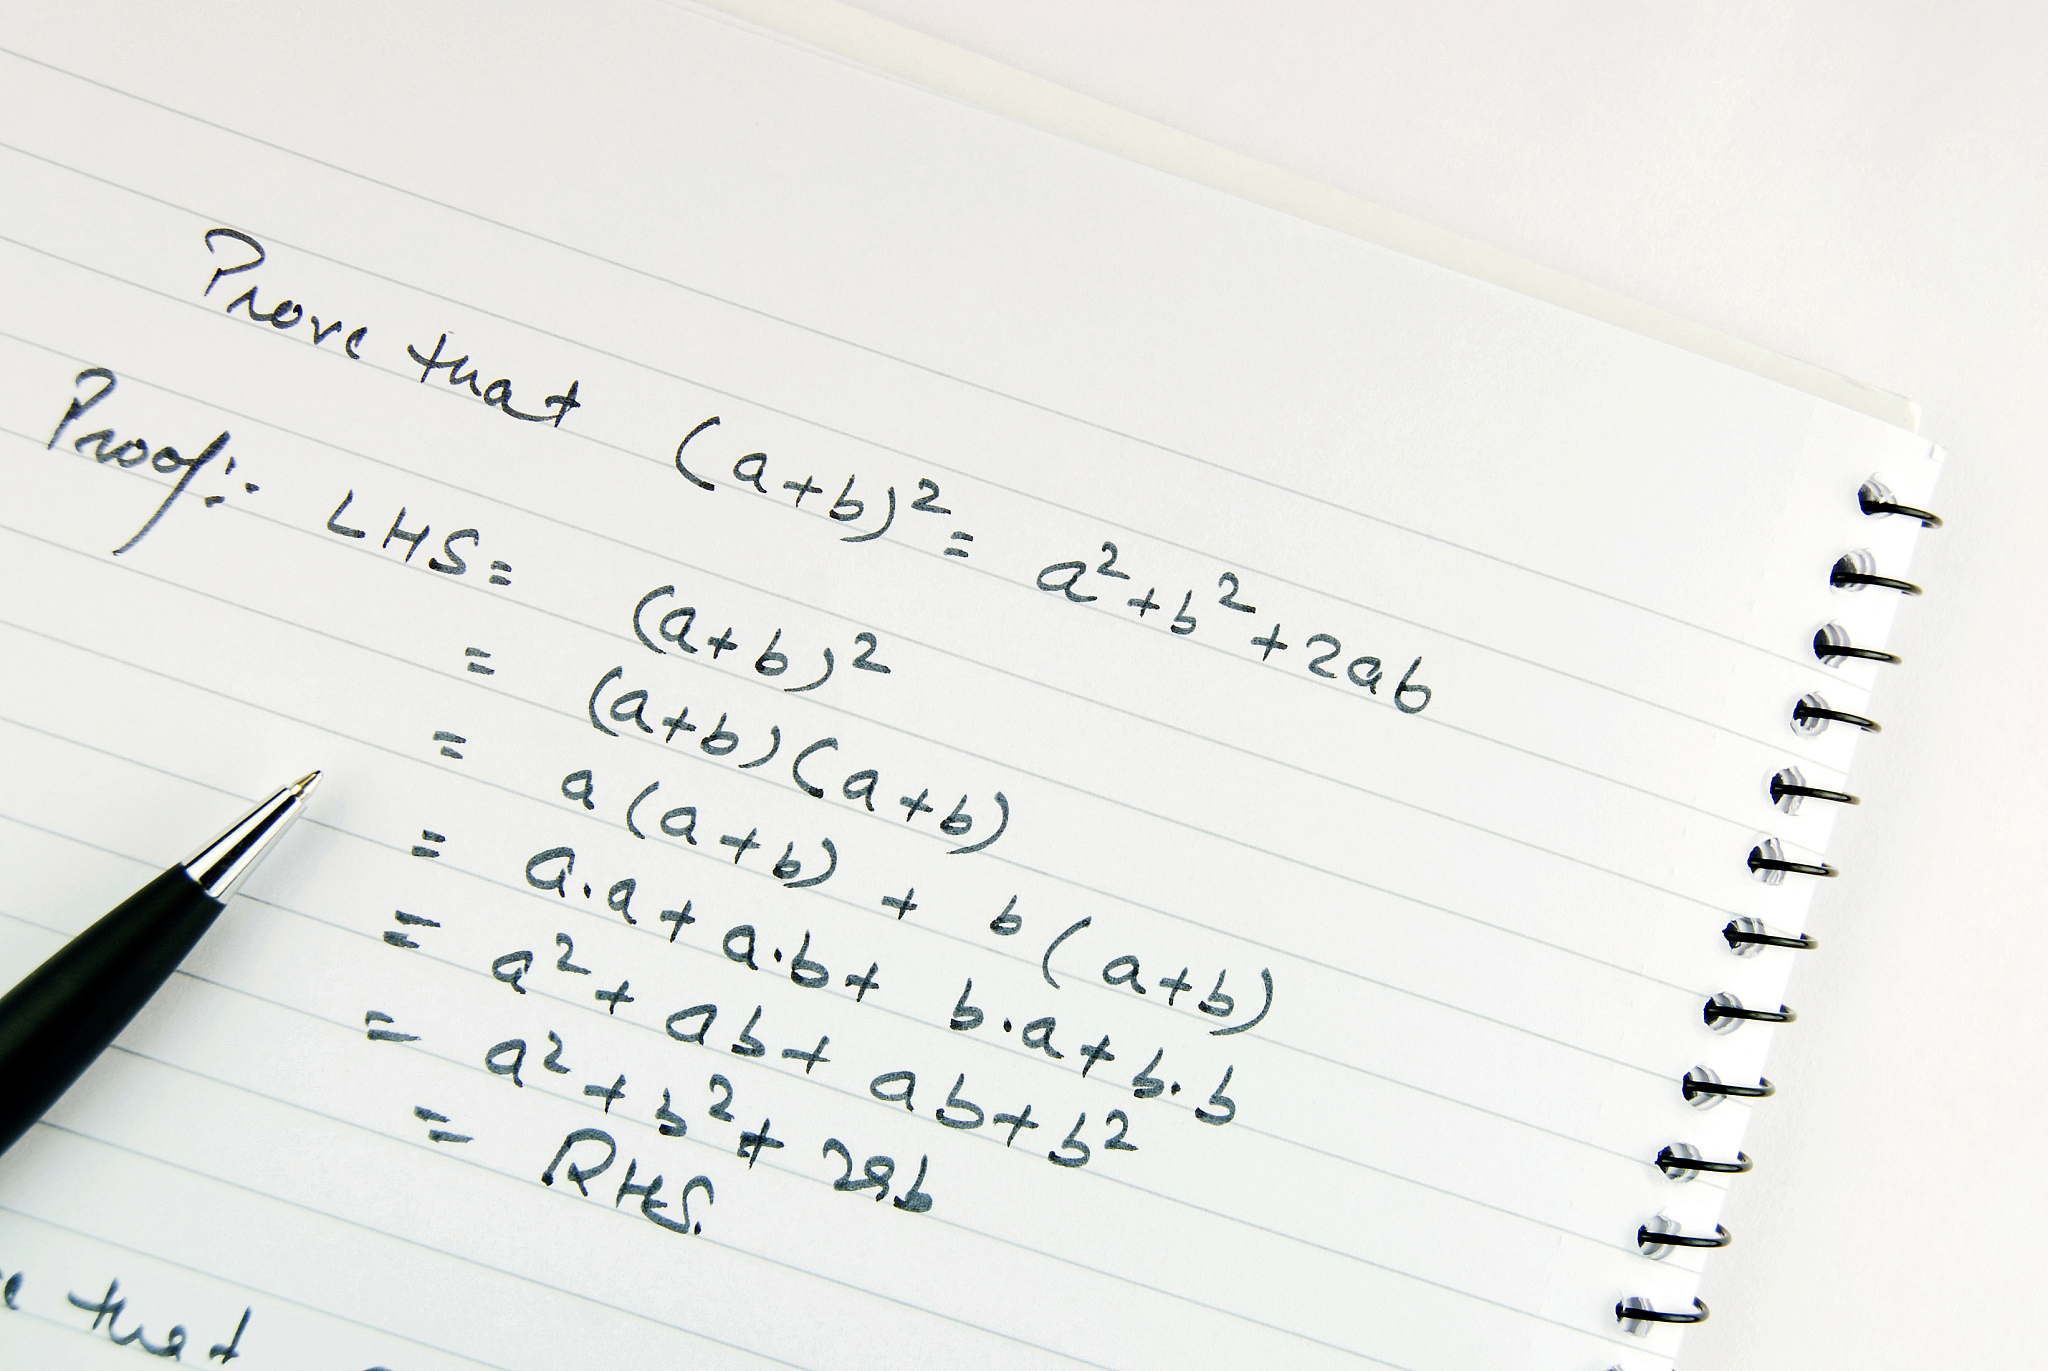 Prove that (a+b)² = a²+b²+2ab
Proof:- LHS = (a+b)²
= (a+b)(a+b)
= a(a+b) + b(a+b)
= a.a + a.b + b.a + b.b
= a² + ab + ab + b²
= a² + b² + 2ab
= RHS.
that